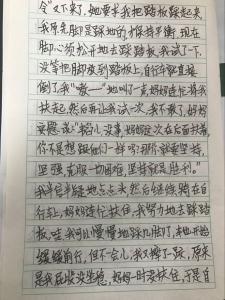 令"又下来，她要求我把踏板踩起来，
我原先脚是踩地的才保持平衡，现在
脚必须松开地去踩踏板，我试了一下，
没等把脚放到踏板上，自行车就直接
倒了我"嗷——"地叫了一声妈妈赶忙将我
扶起，然后再让我试一次，我不敢了，妈妈
安慰说："小心，没事，妈妈这次在后面扶着，
你不是想跟他们一样吗？那就要坚持，
坚强，克服一切困难，坚持就是胜利。"
我半信半疑地点点头，然后继续骑在自
行车上，妈妈连忙扶住，我努力地去踩踏
板，哇，我可以慢慢地踩几脚了，车也开始
缓缓前行，但不一会儿，我又摔了一跤，原来
是我屁股没坐稳，妈妈一时没扶住，于是自